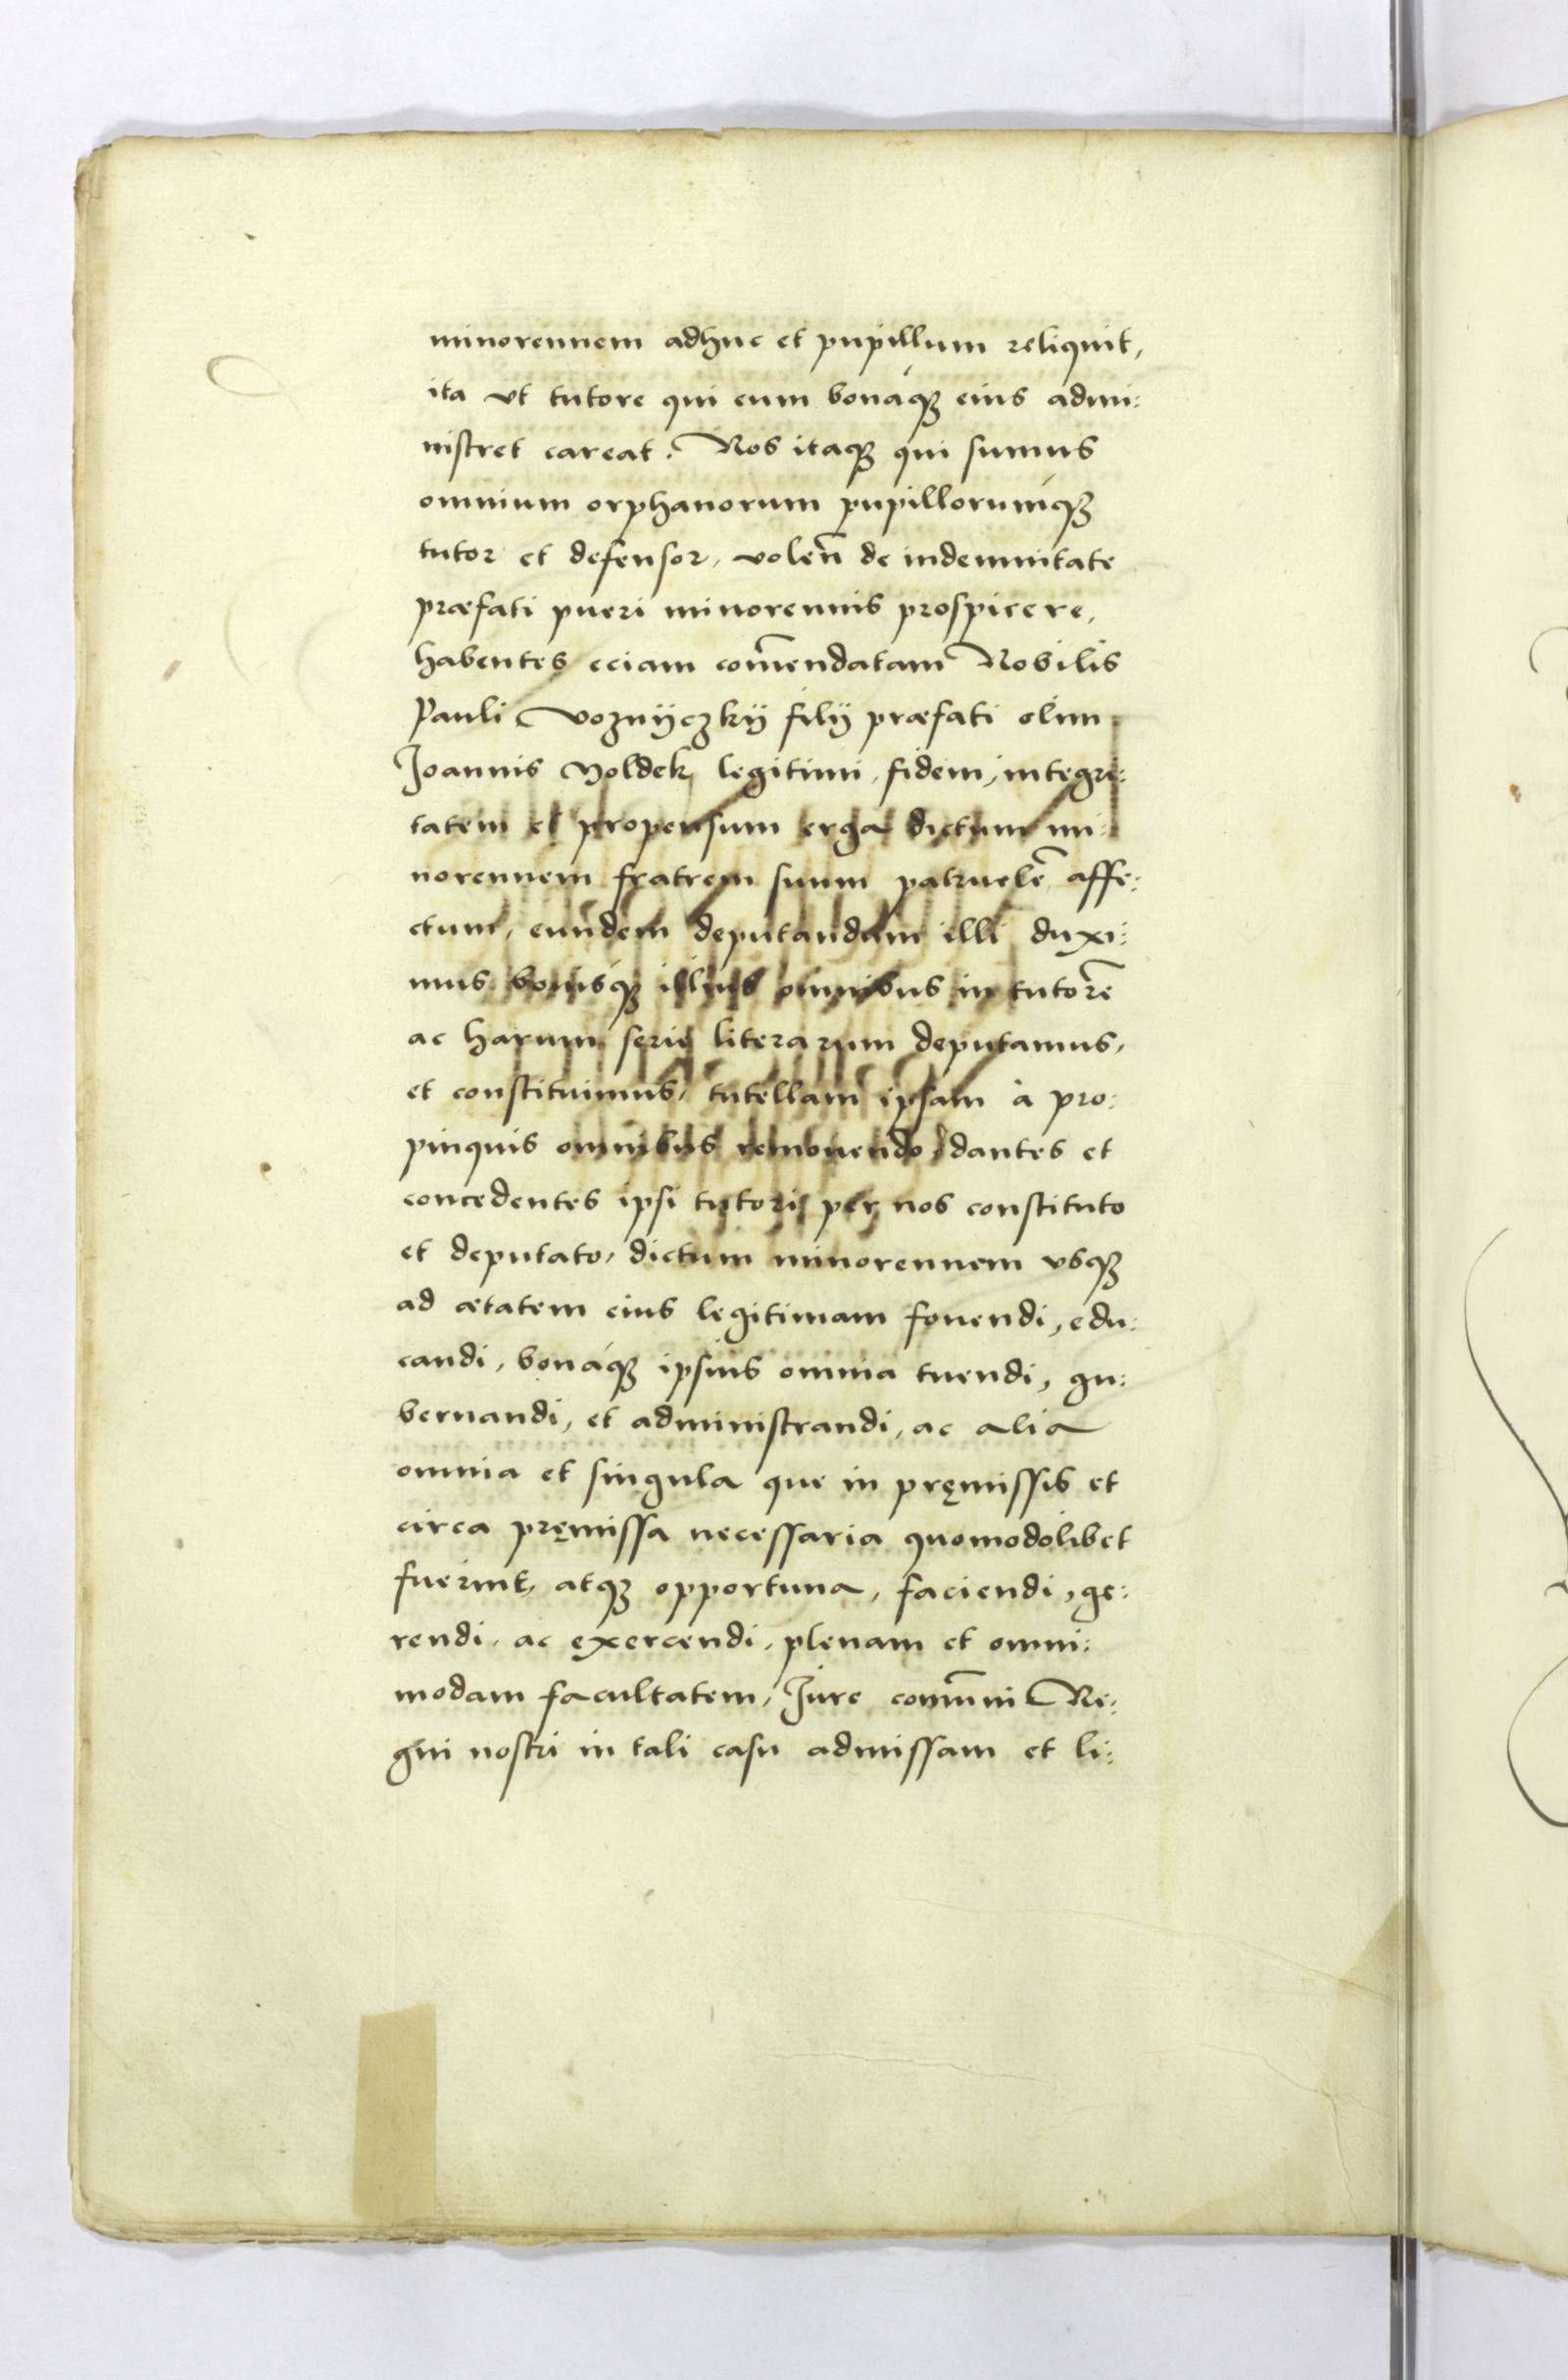 minorennem adhuc et pupillum reliquit,
ita vt tutore qui eum bonáqꝫ eius admi:
nistret careat. Nos itaqꝫ qui sumus
omnium orphanorum pupillorumqꝫ
tutor et defensor, voleñ de indemnitate
præfati pueri minorennis prospicere,
habentes eciam com̃endatam Nobilis
Pauli Voznÿczkÿ filÿ præfati olim
Joannis Noldek legitimi, fidem, integri:
tatem et propensum erga dictum mi:
norennem fratrem suum patruelẽ affe:
ctum, eundem deputandum illi duxi:
mus bonisqꝫ illius omnibus in tutorẽ
ac harum serie literarum deputamus,
et constituimus, tutellam ipsam à pro:
pinquis omnibus remouendo, dantes et
concedentes ipsi tutori per nos constituto
et deputato, dictum minorennem vsqꝫ
ad ætatem eius legitimam fouendi, edu:
candi, bonáqꝫ ipsius omnia tuendi, gu:
bernandi, et administrandi, ac alia
omnia et singula que in pręmissis et
circa pręmissa necessaria quomodolibet
fuerint, atqꝫ opportuna, faciendi, ge:
rendi, ac exercendi, plenam et omni:
modam facultatem, Jure com̃uni Re:
gni nostri in tali casu admissam et li: